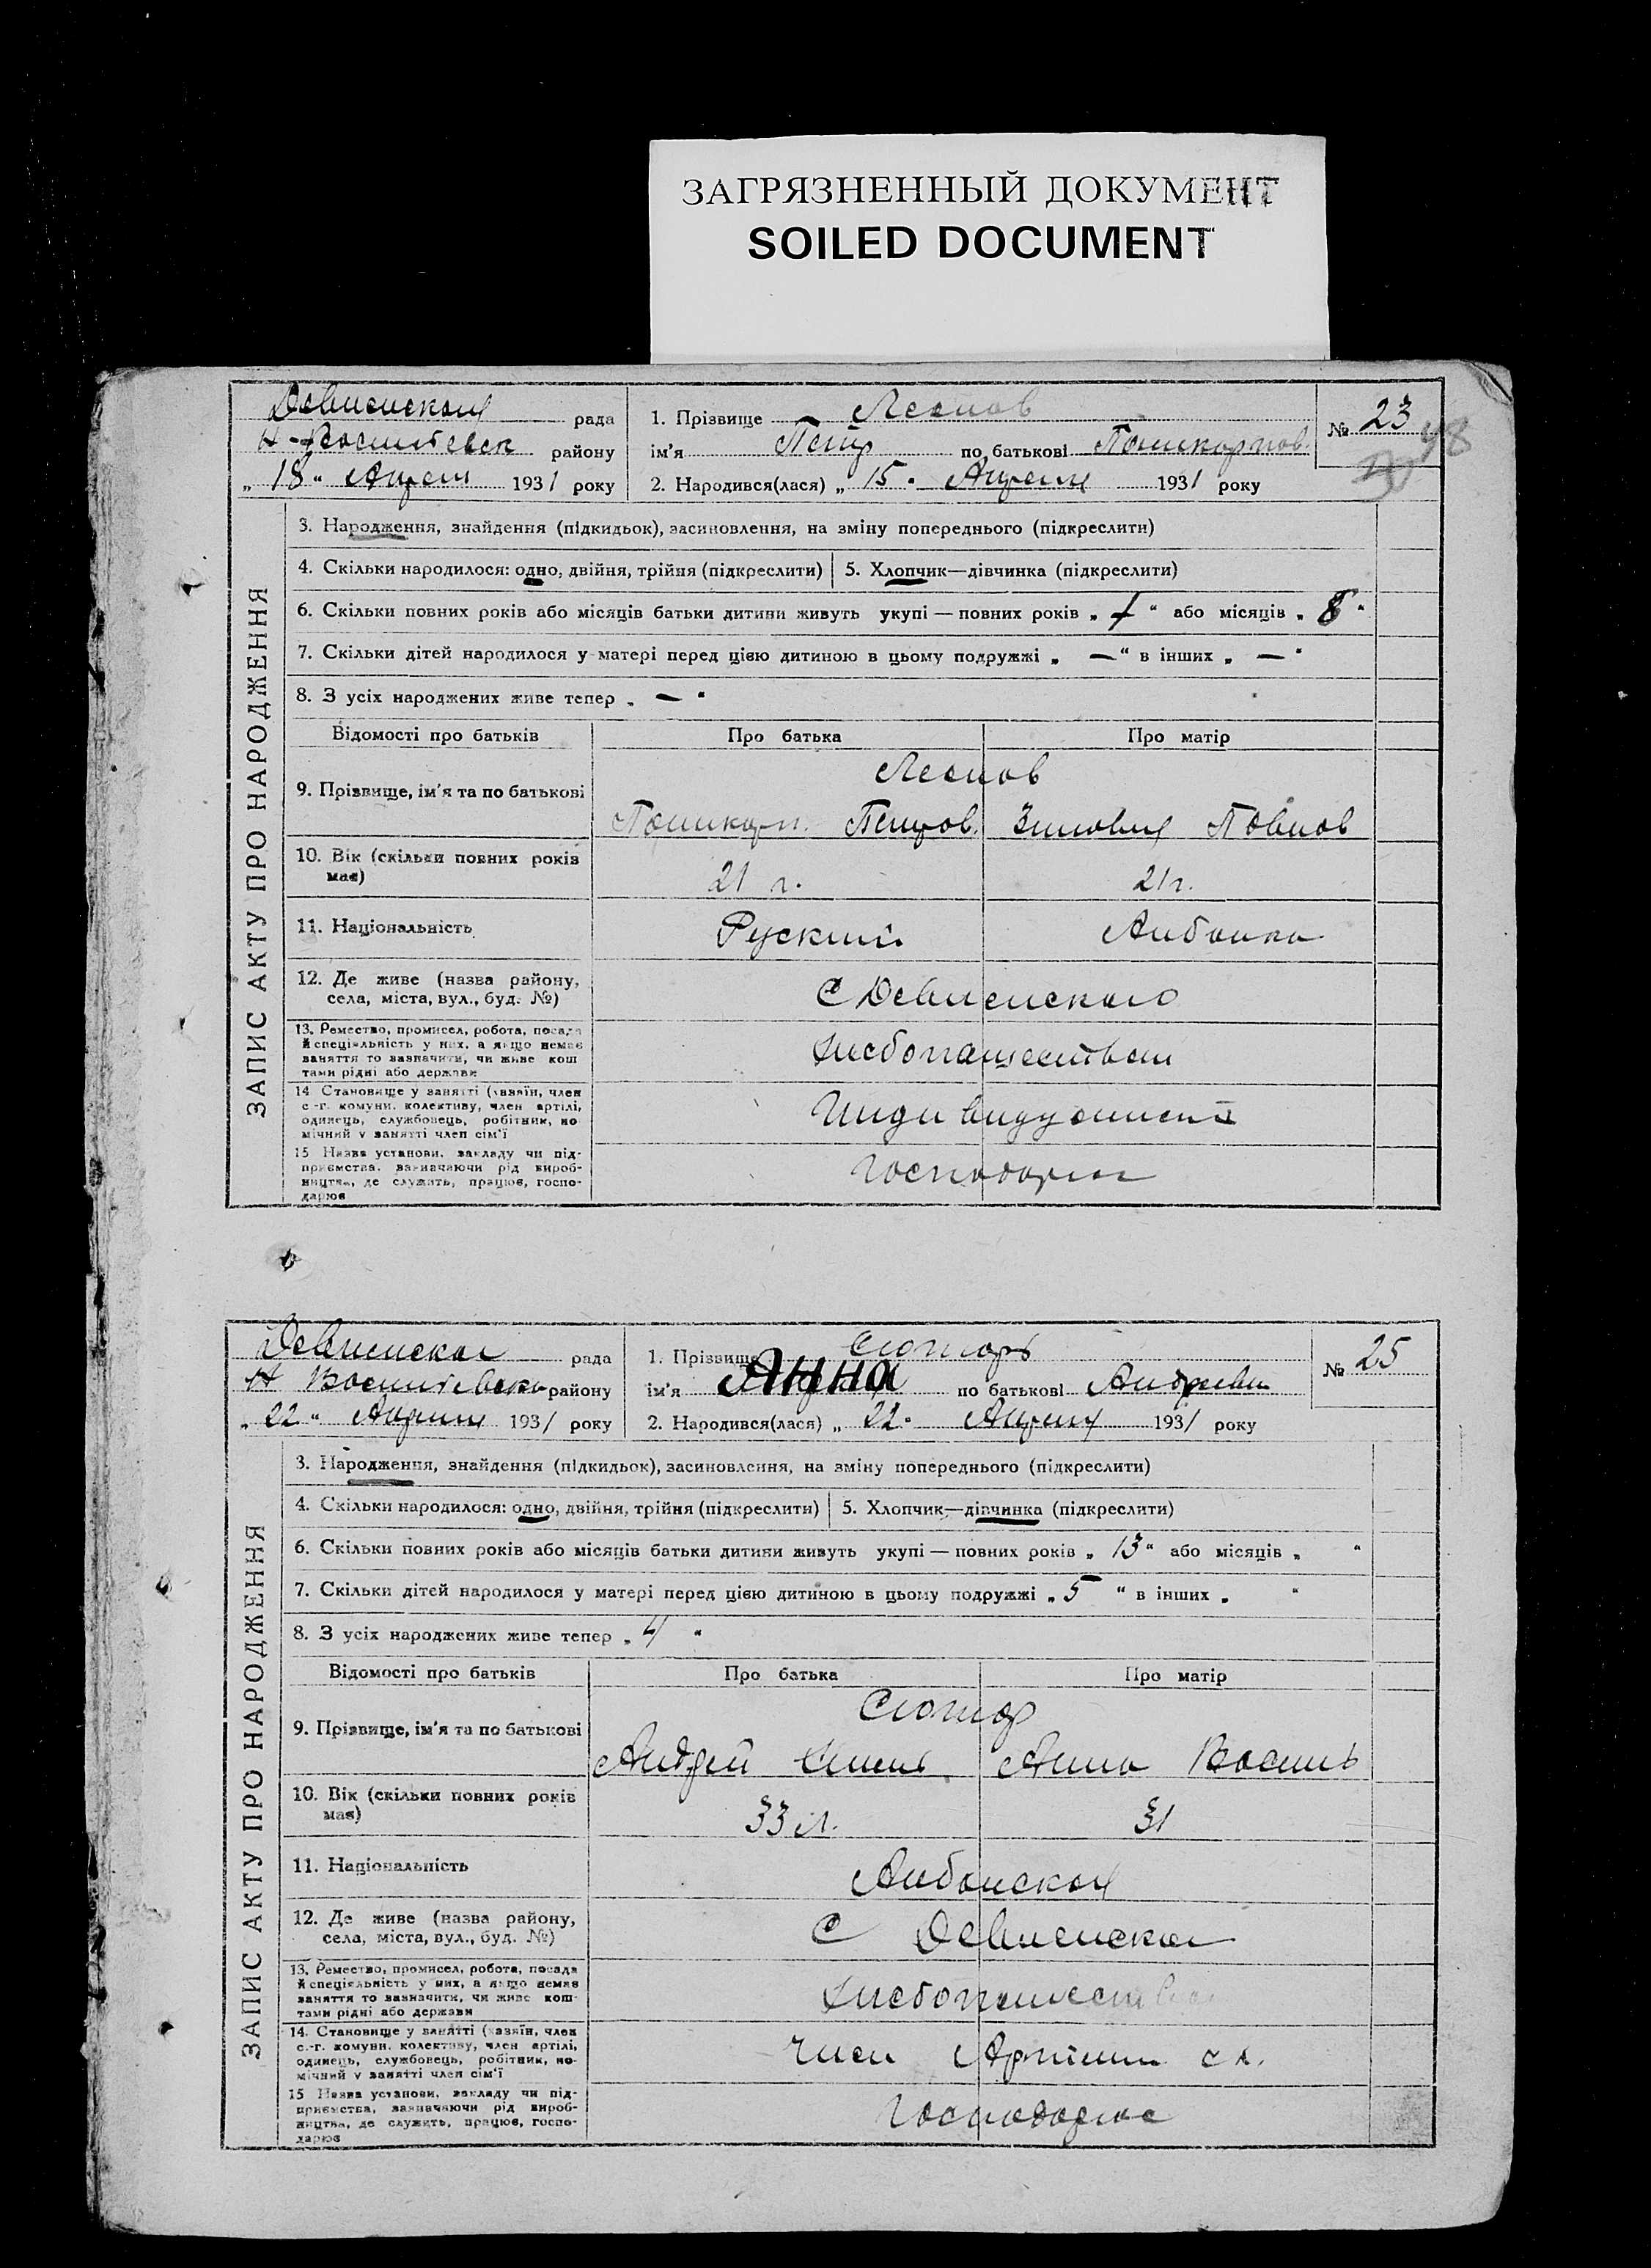 ЗАГРЯЗНЕННЫЙ ДОКУМЕНТ
SOILED DOCUMENT
рада
району
„ 18 “ Апреля 1931 року
1. Прізвище
ім'я Петр по батькові
2. Народився(лася) „ 15 “ Апреля 1931 року
№ 23
48
ЗАПИС АКТУ ПРО НАРОДЖЕННЯ
3. Народження, знайдення (підкидьок), засиновлення, на зміну попереднього (підкреслити)
4. Скільки народилося: одно, двійня, трійня (підкреслити)
5. Хлопчик—дівчинка (підкреслити)
6. Скільки повних років або місяців батьки дитини живуть укупі — повних років „ “ або місяців „ 8 “
7. Скільки дітей народилося у матері перед цією дитиною в цьому подружжі „ — “ в інших „ — “
8. З усіх народжених живе тепер „ — “
Відомості про батьків
Про батька
Про матір
9. Прізвище, ім'я та по батькові
Петров.
10. Вік (скільки повних років
має)
21 г.
21 г.
11. Національність
Руский
Албанка
12. Де живе (назва району,
села, міста, вул., буд. №)
С Девненского
13. Ремество, промисел, робота, посада
й спеціяльність у них, а якщо немає
заняття то зазначити, чи живе кош
тами рідні або держави
14 Становище у занятті (хазяїн, член
с.-г. комуни, колективу, член артілі,
одинець, службовець, робітник, по
мічний у занятті член сім'ї
15 Назва установи, закладу чи під-
приємства, зазначаючи рід вироб-
ництва, де служить, працює, госпо-
дарює
рада
району
„ 22 “ Апреля 1931 року
1. Прізвище
ім'я Анна по батькові
2. Народився(лася) „ 22 “ Апреля 1931 року
№ 25
ЗАПИС АКТУ ПРО НАРОДЖЕННЯ
3. Народження, знайдення (підкидьок), засиновлення, на зміну попереднього (підкреслити)
4. Скільки народилося: одно, двійня, трійня (підкреслити)
5. Хлопчик—дівчинка (підкреслити)
6. Скільки повних років або місяців батьки дитини живуть укупі — повних років „ 13 “ або місяців „ “
7. Скільки дітей народилося у матері перед цією дитиною в цьому подружжі „ 5 “ в інших „ “
8. З усіх народжених живе тепер „ 4 “
Відомості про батьків
Про батька
Про матір
9. Прізвище, ім'я та по батькові
Андрей
Анна Василь
10. Вік (скільки повних років
має)
33 л.
31
11. Національність
Албанская
12. Де живе (назва району,
села, міста, вул., буд. №)
С
13. Ремество, промисел, робота, посада
й спеціяльність у них, а якщо немає
заняття то зазначити, чи живе кош-
тами рідні або держави
14. Становище у занятті (хазяїн, член
с.-г. комуни, колективу, член артілі,
одинець, службовець, робітник, по-
мічний у занятті член сім'ї
Член
15 Назва установи, закладу чи під-
приємства, зазначаючи рід вироб-
ництва, де служить, працює, госпо-
дарює